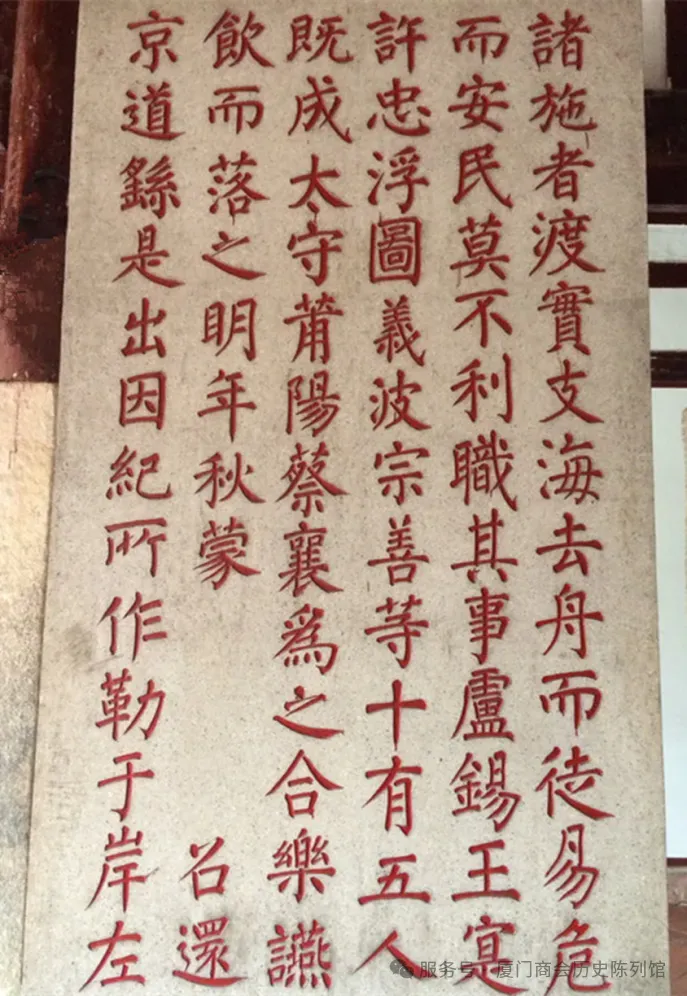 諸施者渡實支海去舟而徒易危
而安民莫不利職其事盧錫王寔
許忠浮圖義波宗善等十有五人
既成太守莆陽蔡襄爲之合樂讌
飲而落之明年秋蒙 召還
京道繇是出因紀所作勒于岸左
服务号 · 厦门商会历史陈列馆